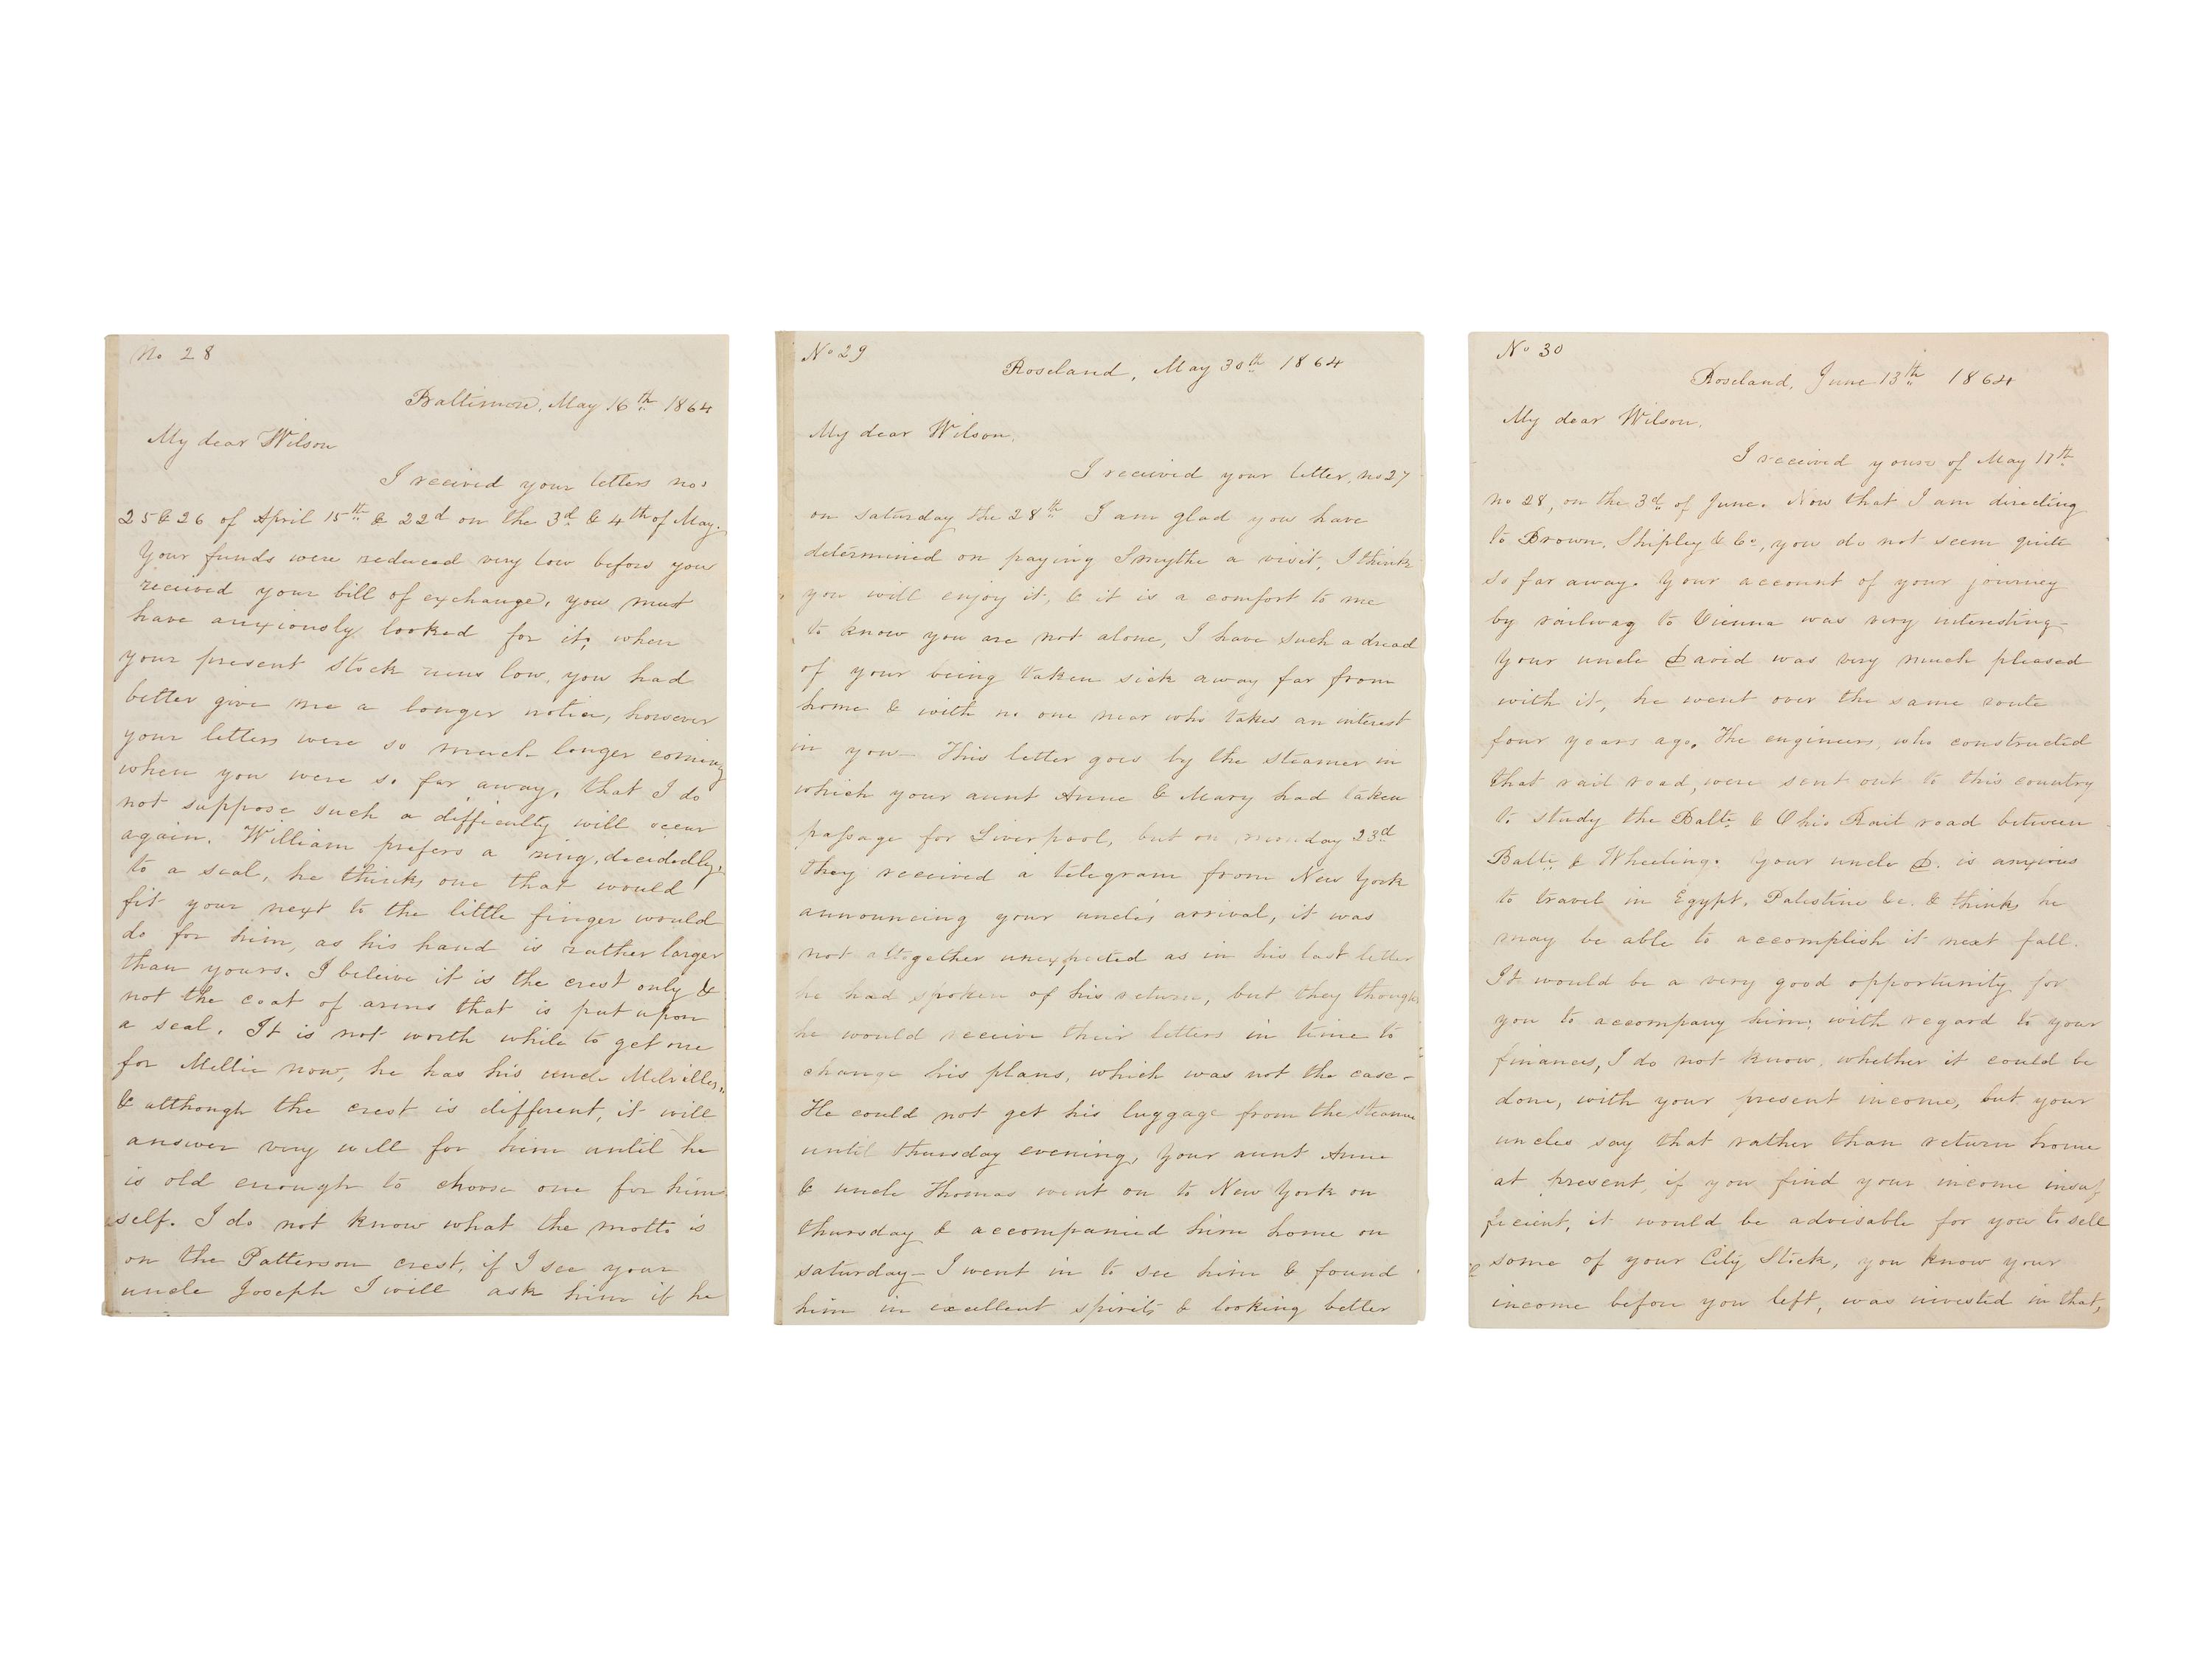 No 28
Baltimore, May 16th 1864
My dear Wilson
I received your letters nos
25 & 26 of April 15th & 22d on the 3d & 4th of May.
Your funds were reduced very low before you
received your bill of exchange, you must
have anxiously looked for it; when
your present stock runs low, you had
better give me a longer notice, however
your letters were so much longer coming
when you were so far away, that I do
not suppose such a difficulty will occur
again. William prefers a ring, decidedly,
to a seal, he thinks one that would
fit your next to the little finger would
do for him, as his hand is rather larger
than yours. I beleive it is the crest only &
not the coat of arms that is put upon
a seal. It is not worth while to get one
for Mellie now, he has his uncle Melville's,
& although the crest is different, it will
answer very well for him until he
is old enough to choose one for him
self. I do not know what the motto is
on the Patterson crest, if I see your
uncle Joseph I will ask him if he
No 29
Roseland, May 30th 1864
My dear Wilson,
I received your letter, no 27
on saturday the 28th I am glad you have
determined on paying Smythe a visit, I think
you will enjoy it, & it is a comfort to me
to know you are not alone, I have such a dread
of your being taken sick away far from
home & with no one near who takes an interest
in you — This letter goes by the steamer in
which your aunt Anne & Mary had taken
passage for Liverpool, but on monday 23d
they received a telegram from New York
announcing your uncle's arrival, it was
not altogether unexpected as in his last letter
he had spoken of his return, but they thought
he would receive their letters in time to
change his plans, which was not the case —
He could not get his luggage from the steamer
until thursday evening, Your aunt Anne
& uncle Thomas went on to New York on
thursday & accompanied him home on
saturday — I went in to see him & found
him in excellent spirits & looking better
No 30
Roseland, June 13th 1864
My dear Wilson,
I received yours of May 17th
no 28, on the 3d of June. Now that I am directing
to Brown, Shipley & Co, you do not seem quite
so far away. Your account of your journey
by railway to Vienna was very interesting —
Your uncle David was very much pleased
with it, he went over the same route
four years ago. The engineers, who constructed
that rail road, were sent out to this country
to study the Balto & Ohio Rail road between
Balto & Wheeling. Your uncle D. is anxious
to travel in Egypt, Palestine &c. & thinks he
may be able to accomplish it next fall.
It would be a very good opportunity for
you to accompany him; with regard to your
finances, I do not know whether it could be
done, with your present income, but your
uncles say that rather than return home
at present, if you find your income insuf
ficient, it would be advisable for you to sell
some of your City Stock, you know your
income before you left, was invested in that,